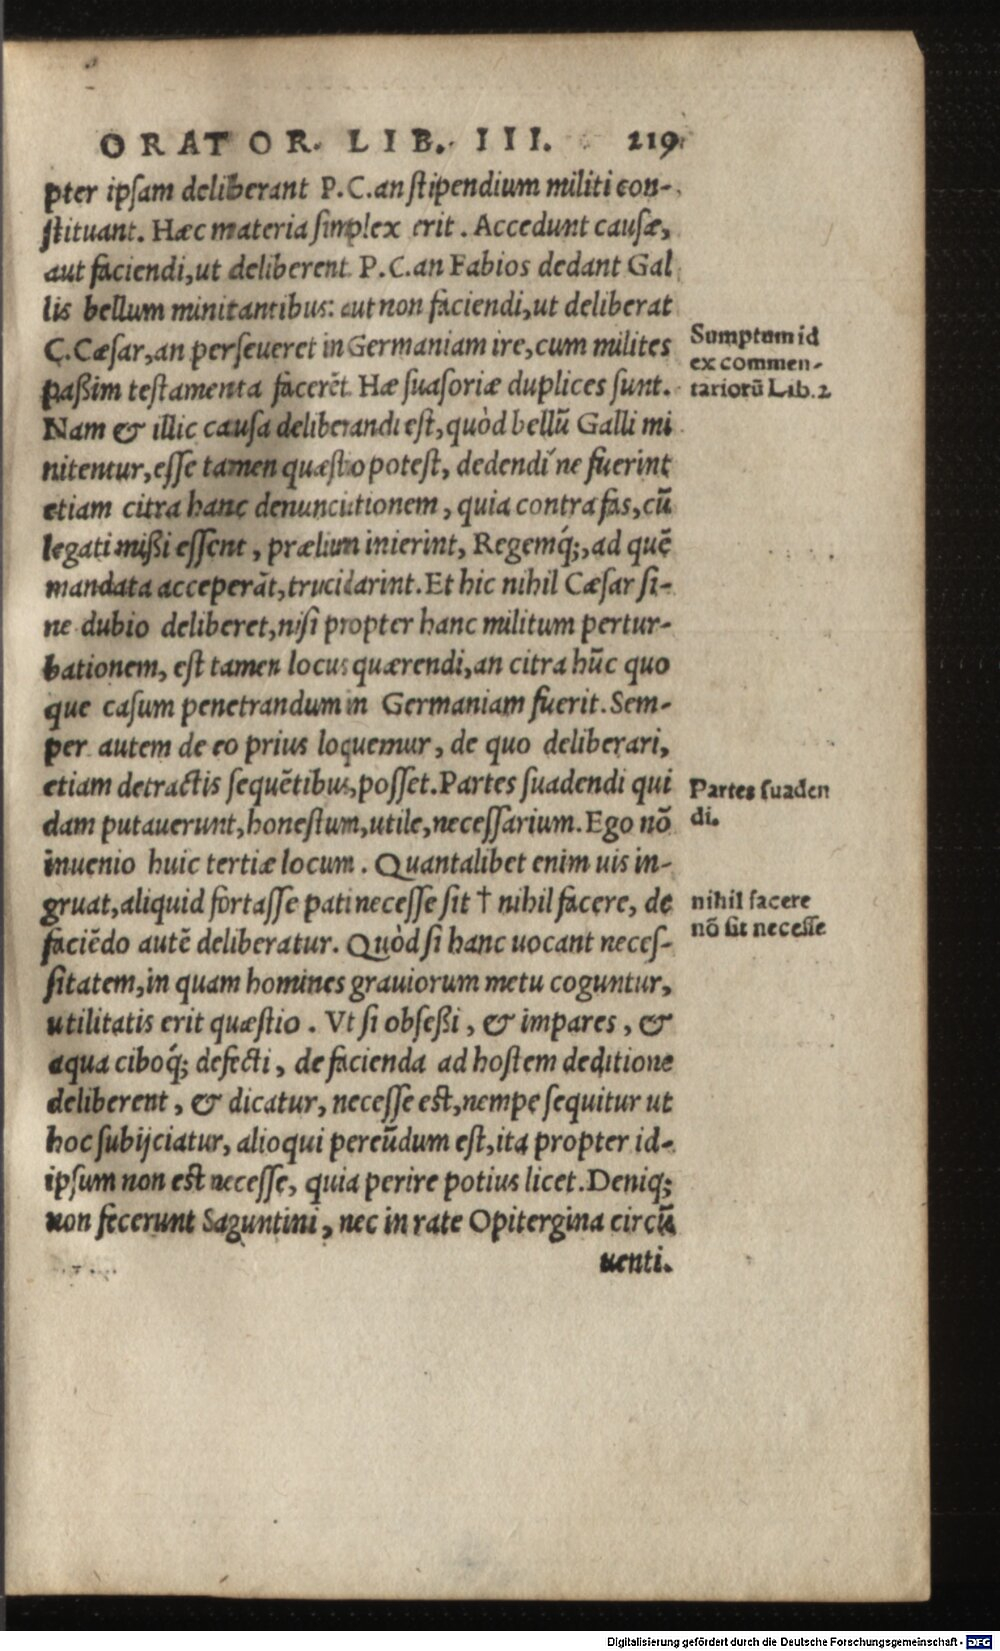 ORATOR. LIB. III. 219
pter ipsam deliberant P.C.an stipendium militi con-
stituant. Hæc materia simplex erit. Accedunt causæ,
aut faciendi,ut deliberent P.C.an Fabios dedant Gal
lis bellum minitantibus: aut non faciendi,ut deliberat
C.Cæsar,an perseueret in Germaniam ire,cum milites
paßim testamenta facerēt. Hæ suasoriæ duplices sunt.
Nam & illic causa deliberandi est,quòd bellū Galli mi
nitentur,esse tamen quæstio potest, dedendi ne fuerint
etiam citra hanc denunciationem, quia contra fas,cū
legati mißi essent, prælium inierint, Regemq́;,ad quē
mandata acceperāt,trucidarint. Et hic nihil Cæsar si-
ne dubio deliberet,nisi propter hanc militum pertur-
bationem, est tamen locus quærendi,an citra hūc quo
que casum penetrandum in Germaniam fuerit. Sem-
per autem de eo prius loquemur, de quo deliberari,
etiam detractis sequētibus,posset. Partes suadendi qui
dam putauerunt,honestum,utile,necessarium. Ego nō
inuenio huic tertiæ locum. Quantalibet enim uis in-
gruat,aliquid fortasse pati necesse sit † nihil facere, de
faciēdo autē deliberatur. Quòd si hanc uocant neces-
sitatem,in quam homines grauiorum metu coguntur,
utilitatis erit quæstio. Vt si obseßi, & impares, &
aqua ciboq́; defecti, de facienda ad hostem deditione
deliberent, & dicatur, necesse est,nempe sequitur ut
hoc subijciatur, alioqui pereūdum est,ita propter id-
ipsum non est necesse, quia perire potius licet. Deniq;
non fecerunt Saguntini, nec in rate Opitergina circū
uenti.
Sumptum id
ex commen-
tariorū Lib.2
Partes suaden
di.
nihil facere
nō sit necesse
Digitalisierung gefördert durch die Deutsche Forschungsgemeinschaft - DFG